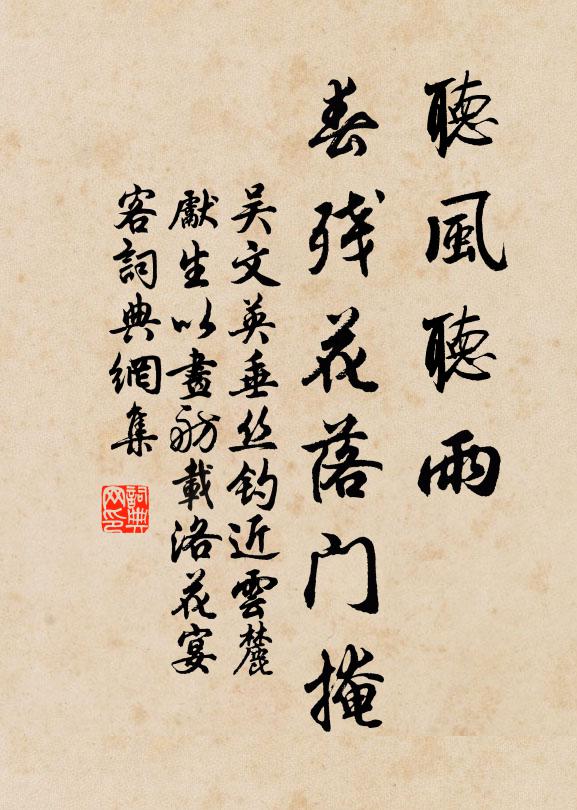 聽風聽雨
春残花落門掩
吴文英垂丝釣近雲麓
獻生以畫舫載洛花宴
客詞典網集
詞典网印